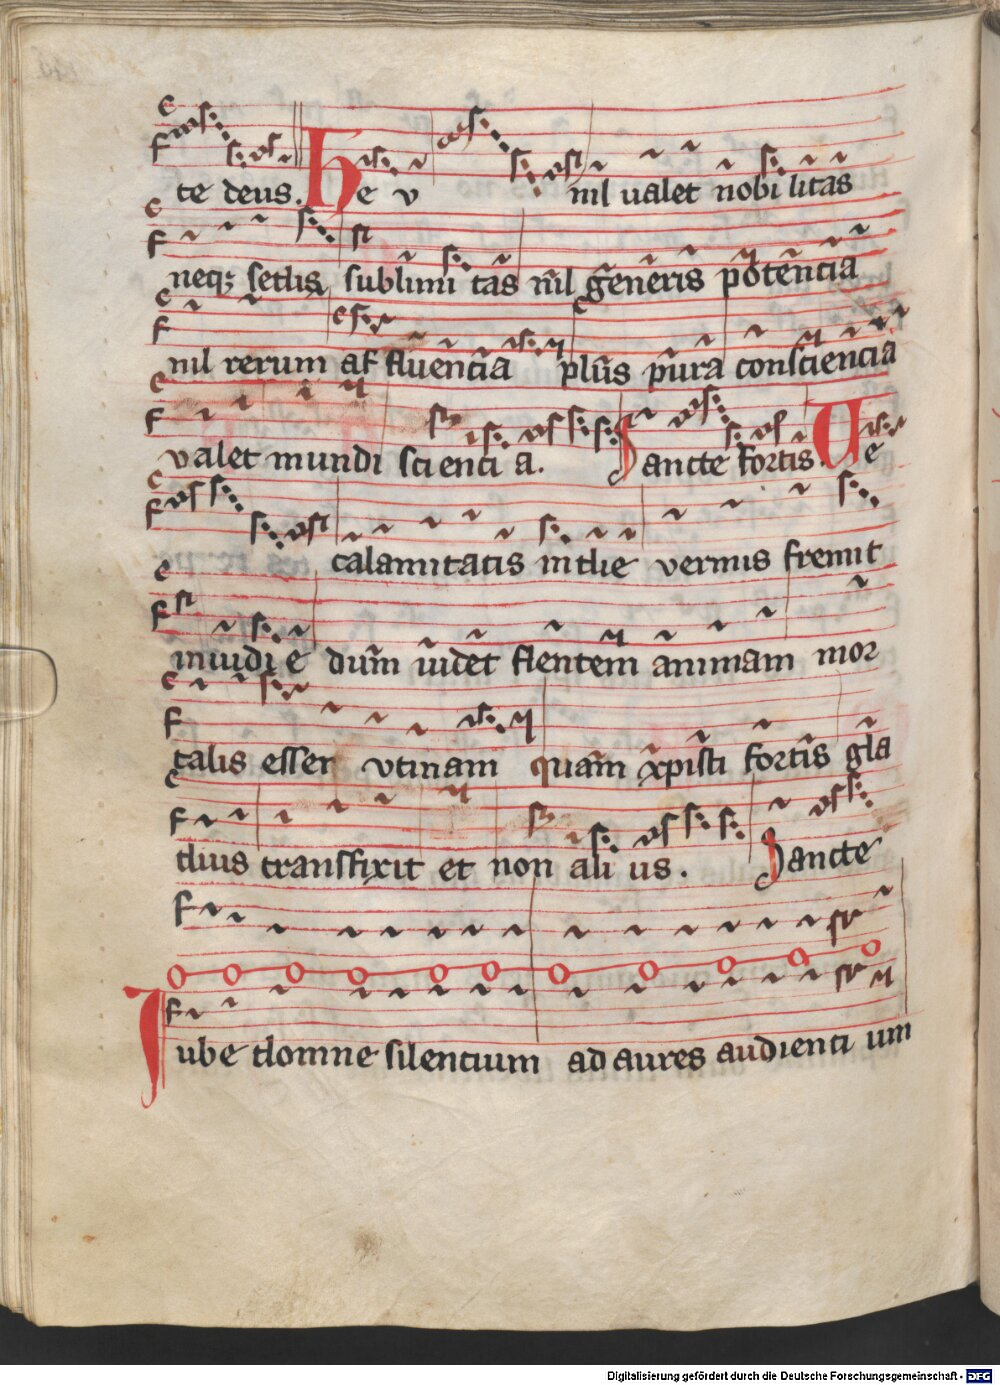 te deus. Hev nil ualet nobilitas
neq; sedis sublimitas nil generis potencia
nil rerum affluencia plus pura consciencia
valet mundi sciencia. Sancte fortis. Ve
calamitatis indie vermis fremit
inuidie dum uidet flentem animam mor
talis esser vtinam quam xpisti fortis gla
dius transfixit et non alius. Sancte
Iube domne silencium ad aures audiencium
Digitalisierung gefördert durch die Deutsche Forschungsgemeinschaft - DFG